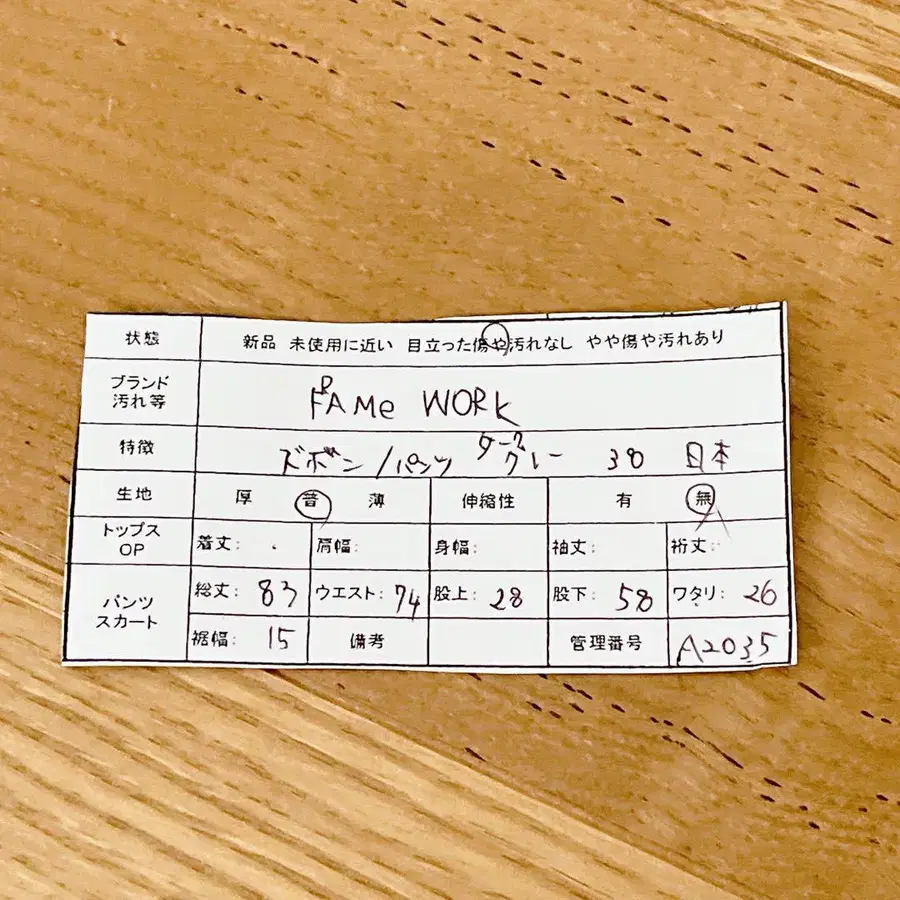 状態 新品 未使用に近い 目立った傷や汚れなし やや傷や汚れあり
ブランド
汚れ等
FRAMe WORK
特徴 ズボン/パンツ ダークグレー 38 日本
生地 厚 普 薄 伸縮性 有 無
トップス
OP
着丈: 肩幅: 身幅: 袖丈: 裄丈:
パンツ
スカート
総丈: 83 ウエスト: 74 股上: 28 股下: 58 ワタリ: 26
裾幅: 15 備考 管理番号 A2035